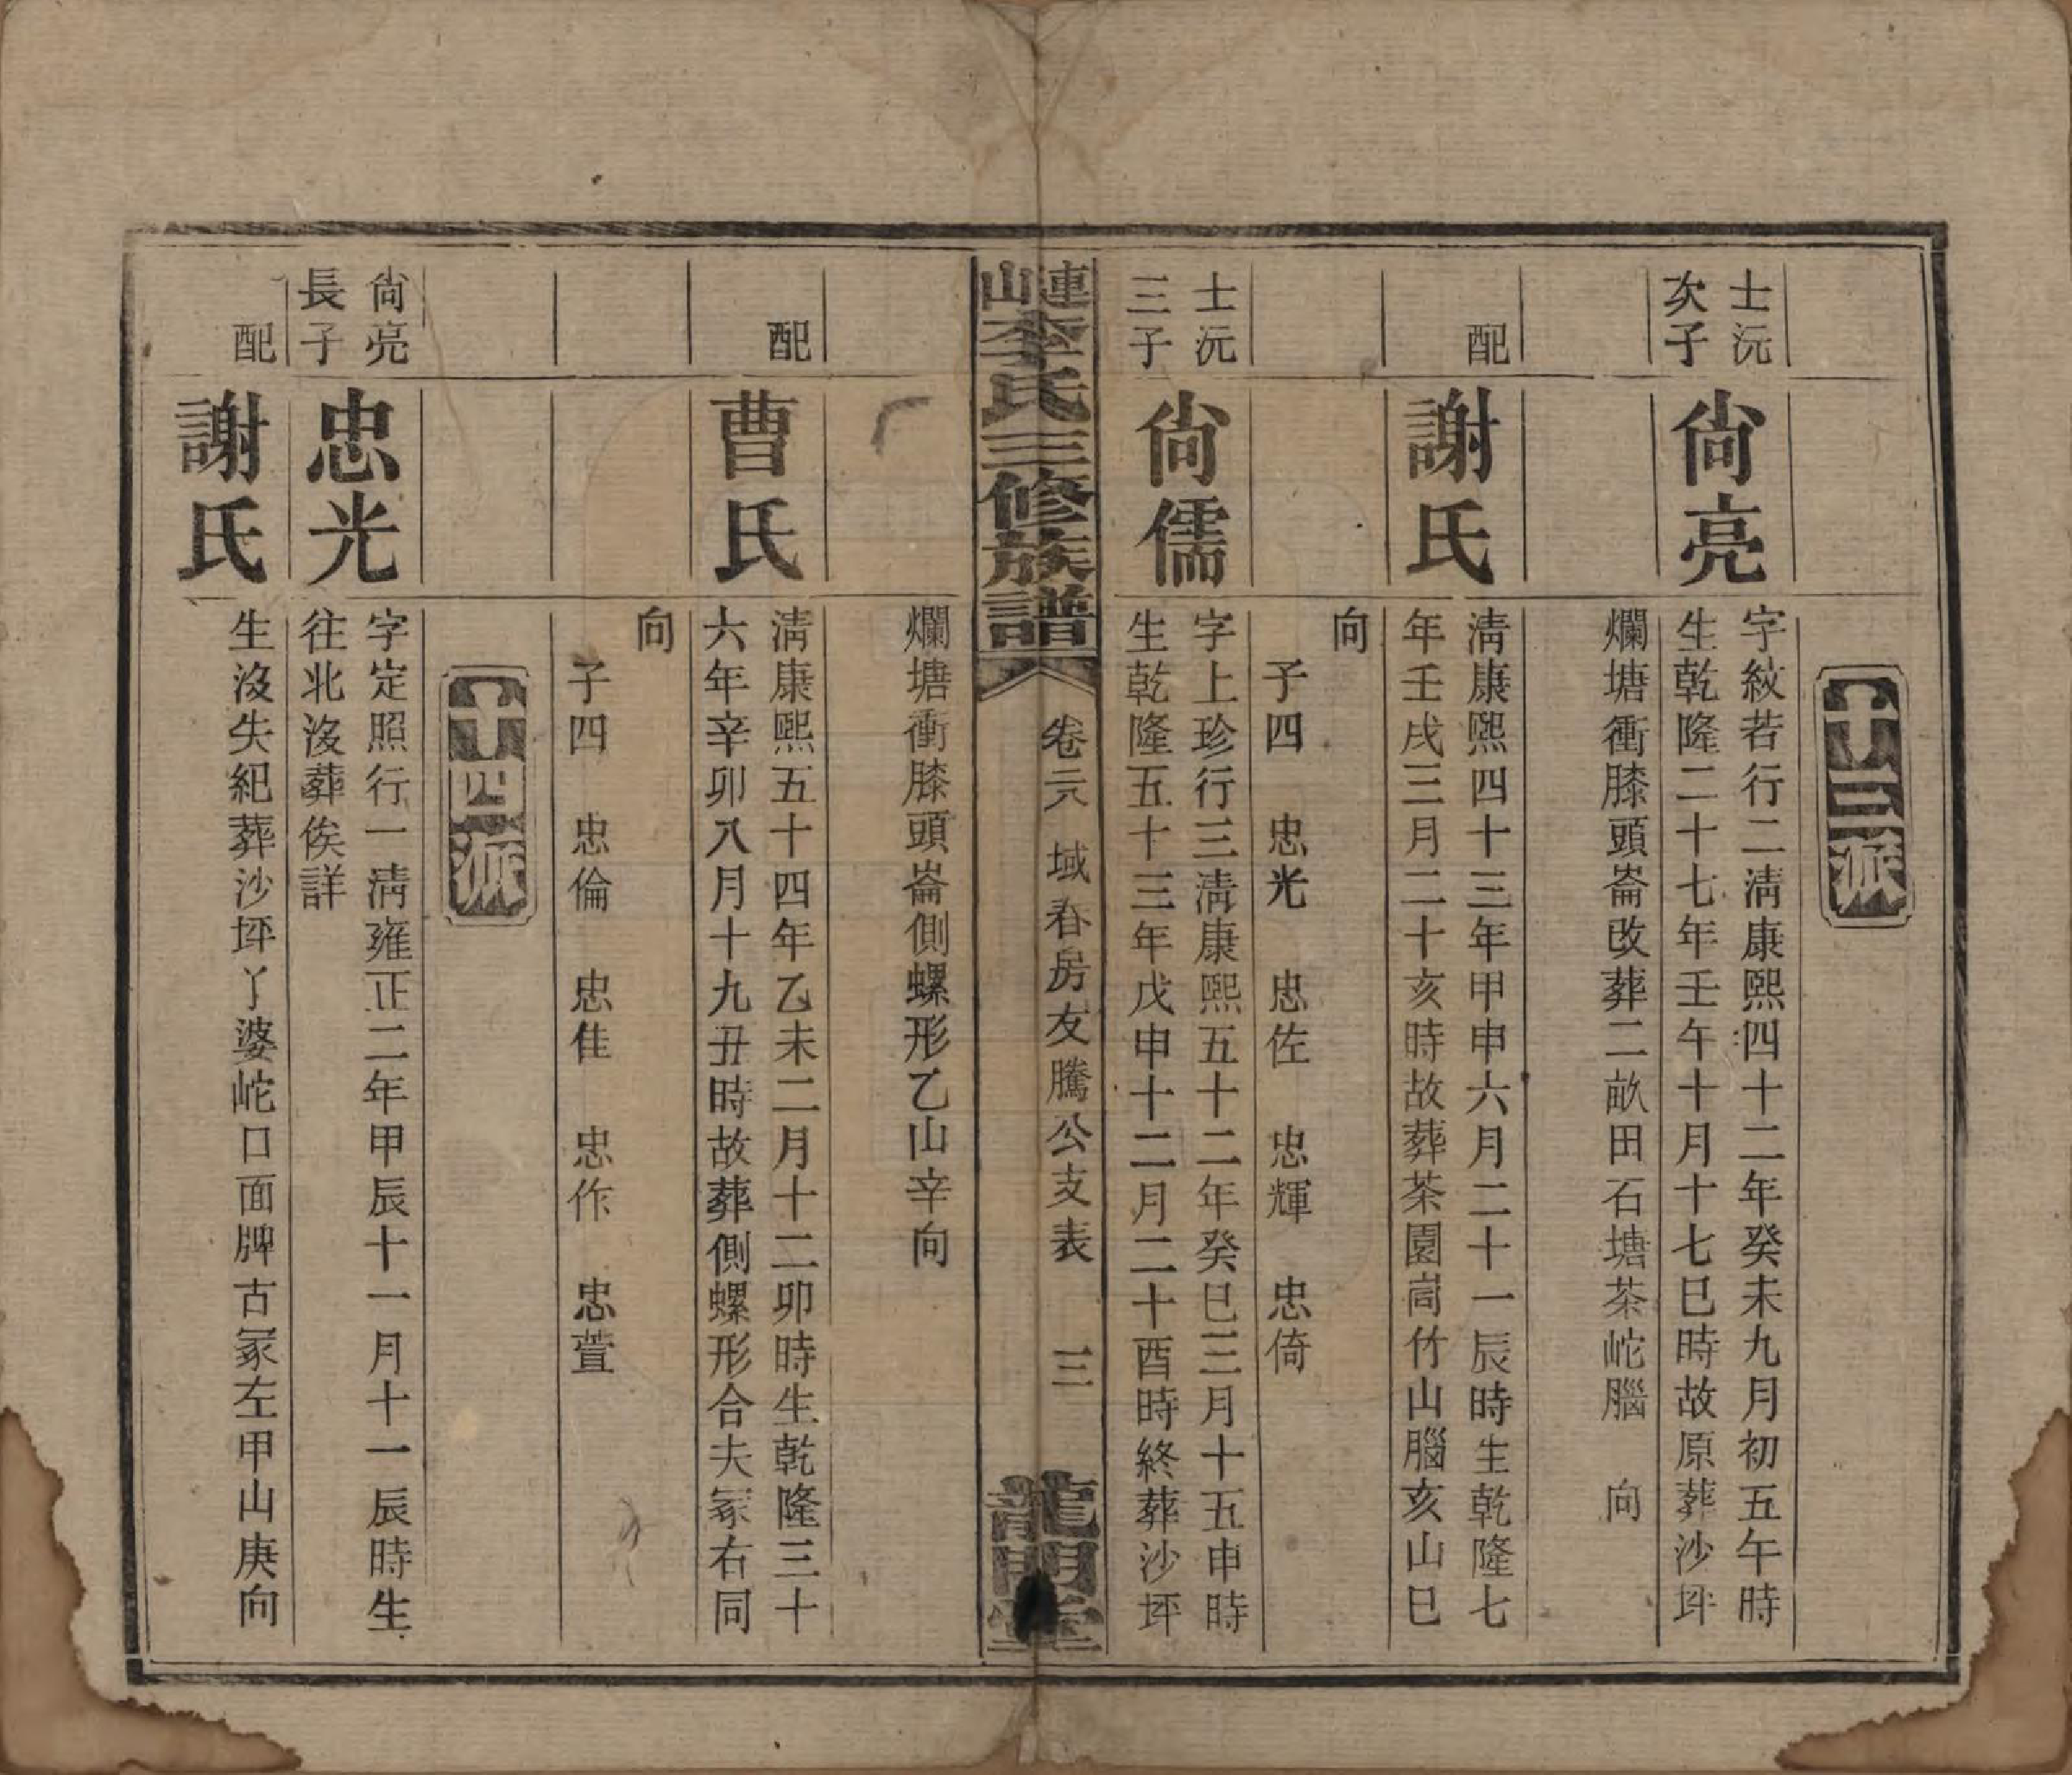 十三派
士沅
次子
尙亮
字紋若行二淸康熙四十二年癸未九月初五午時
生乾隆二十七年壬午十月十七巳時故原葬沙坪
爛塘衝膝頭崙改葬二畝田石塘茶岮腦 向
配
謝氏
淸康熙四十三年甲申六月二十一辰時生乾隆七
年壬戌三月二十亥時故葬茶園崗竹山腦亥山巳
向
子四 忠光 忠佐 忠輝 忠倚
士沅
三子
尙儒
字上珍行三淸康熙五十二年癸巳三月十五申時
生乾隆五十三年戊申十二月二十酉時終葬沙坪
連山李氏三修族譜
卷二六 域春房友騰公支表 三
龍門堂
爛塘衝膝頭崙側螺形乙山辛向
配
曹氏
淸康熙五十四年乙未二月十二卯時生乾隆三十
六年辛卯八月十九丑時故葬側螺形合夫冢右同
向
子四 忠倫 忠佳 忠作 忠萱
十四派
尙亮
長子
忠光
字定照行一淸雍正二年甲辰十一月十一辰時生
往北沒葬俟詳
配
謝氏
生沒失紀葬沙坪丫婆岮口面牌古冢左甲山庚向